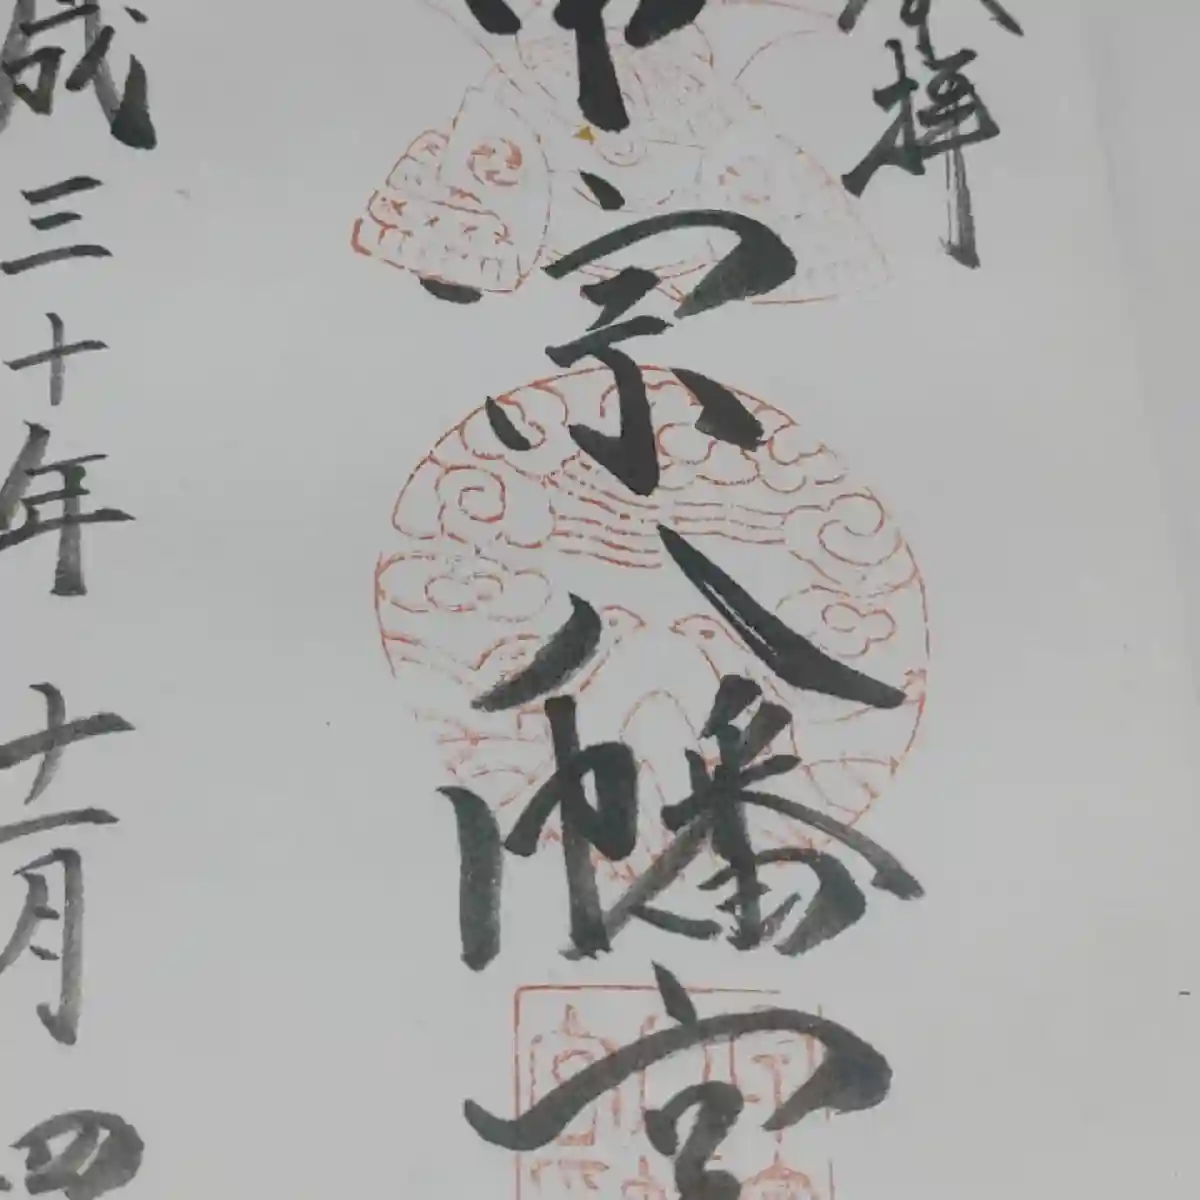 奉拝
甲宗八幡宮
成三十年 十一月 四